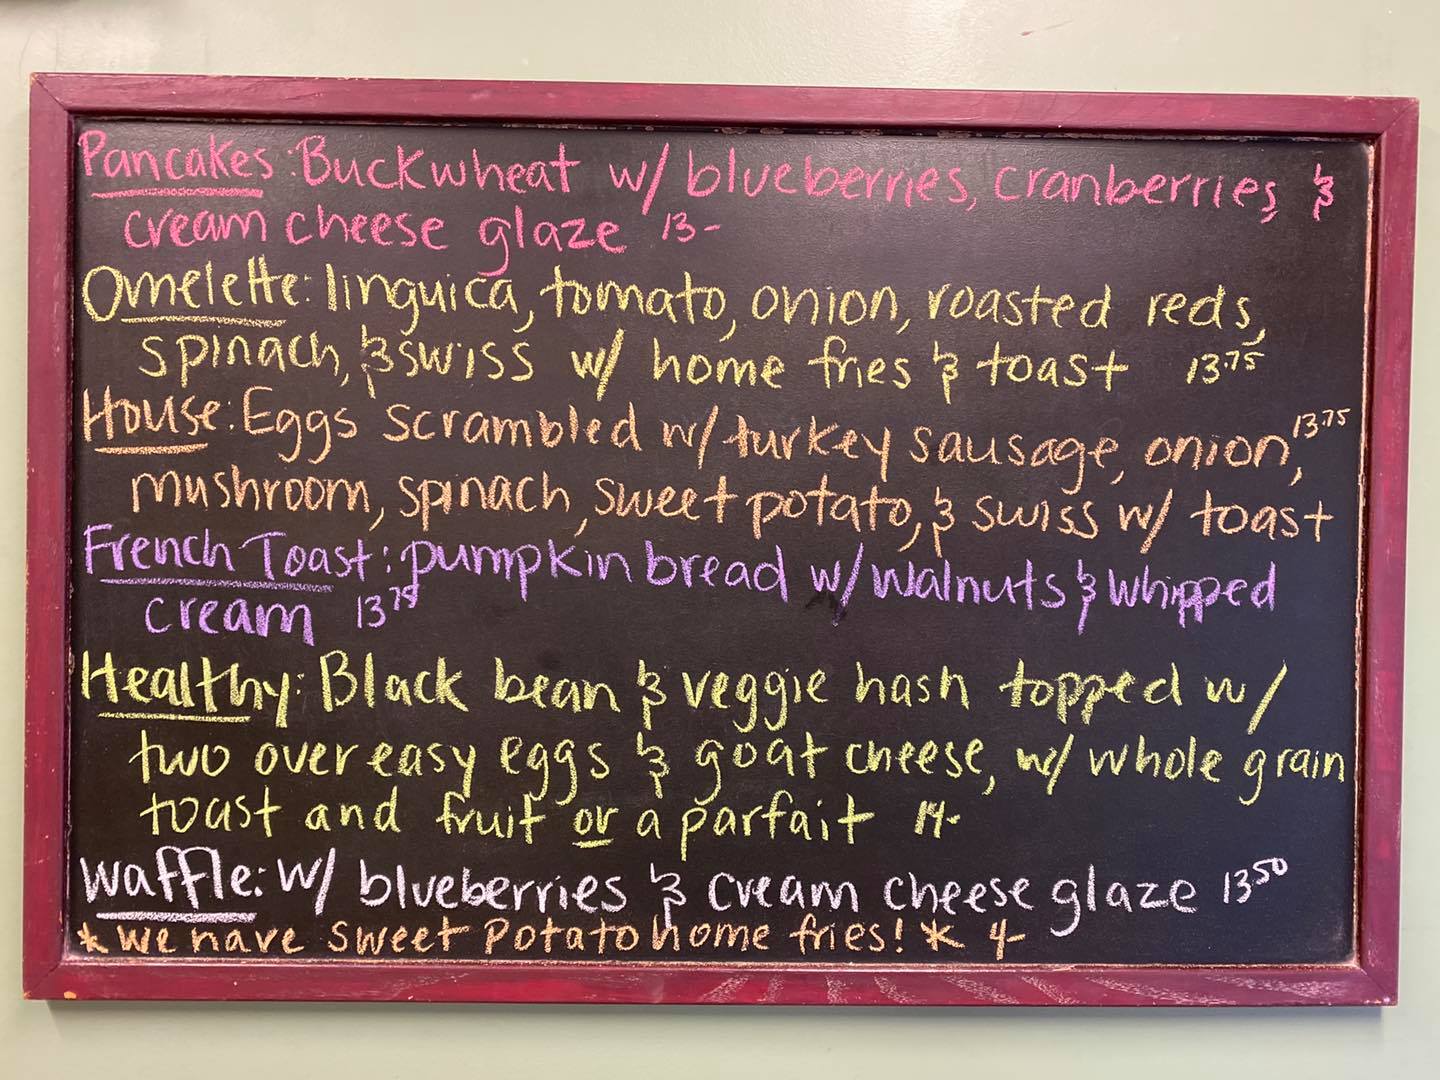 Pancakes: Buckwheat w/ blueberries, cranberries, &
cream cheese glaze 13-
Omelette: linguica, tomato, onion, roasted reds,
spinach, & swiss w/ home fries & toast 13.75
House: Eggs scrambled w/ turkey sausage, onion, 13.75
mushroom, spinach, sweet potato, & swiss w/ toast
French Toast: pumpkin bread w/ walnuts & whipped
cream 13.75
Healthy: Black bean & veggie hash topped w/
two over easy eggs & goat cheese, w/ whole grain
toast and fruit or a parfait 14-
Waffle: w/ blueberries & cream cheese glaze 13.50
*We have sweet potato home fries!* 4-